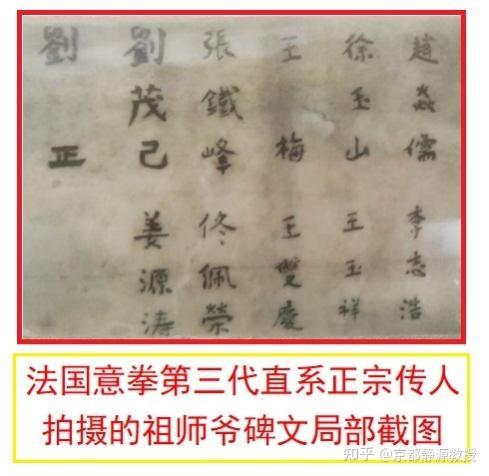 趙焱儒 李志浩
徐玉山 王玉祥
王梅 王雙慶
張鐵峰 佟佩榮
劉茂己 姜源涛
劉正
法国意拳第三代直系正宗传人
拍摄的祖师爷碑文局部截图
知乎 @京都静源教授